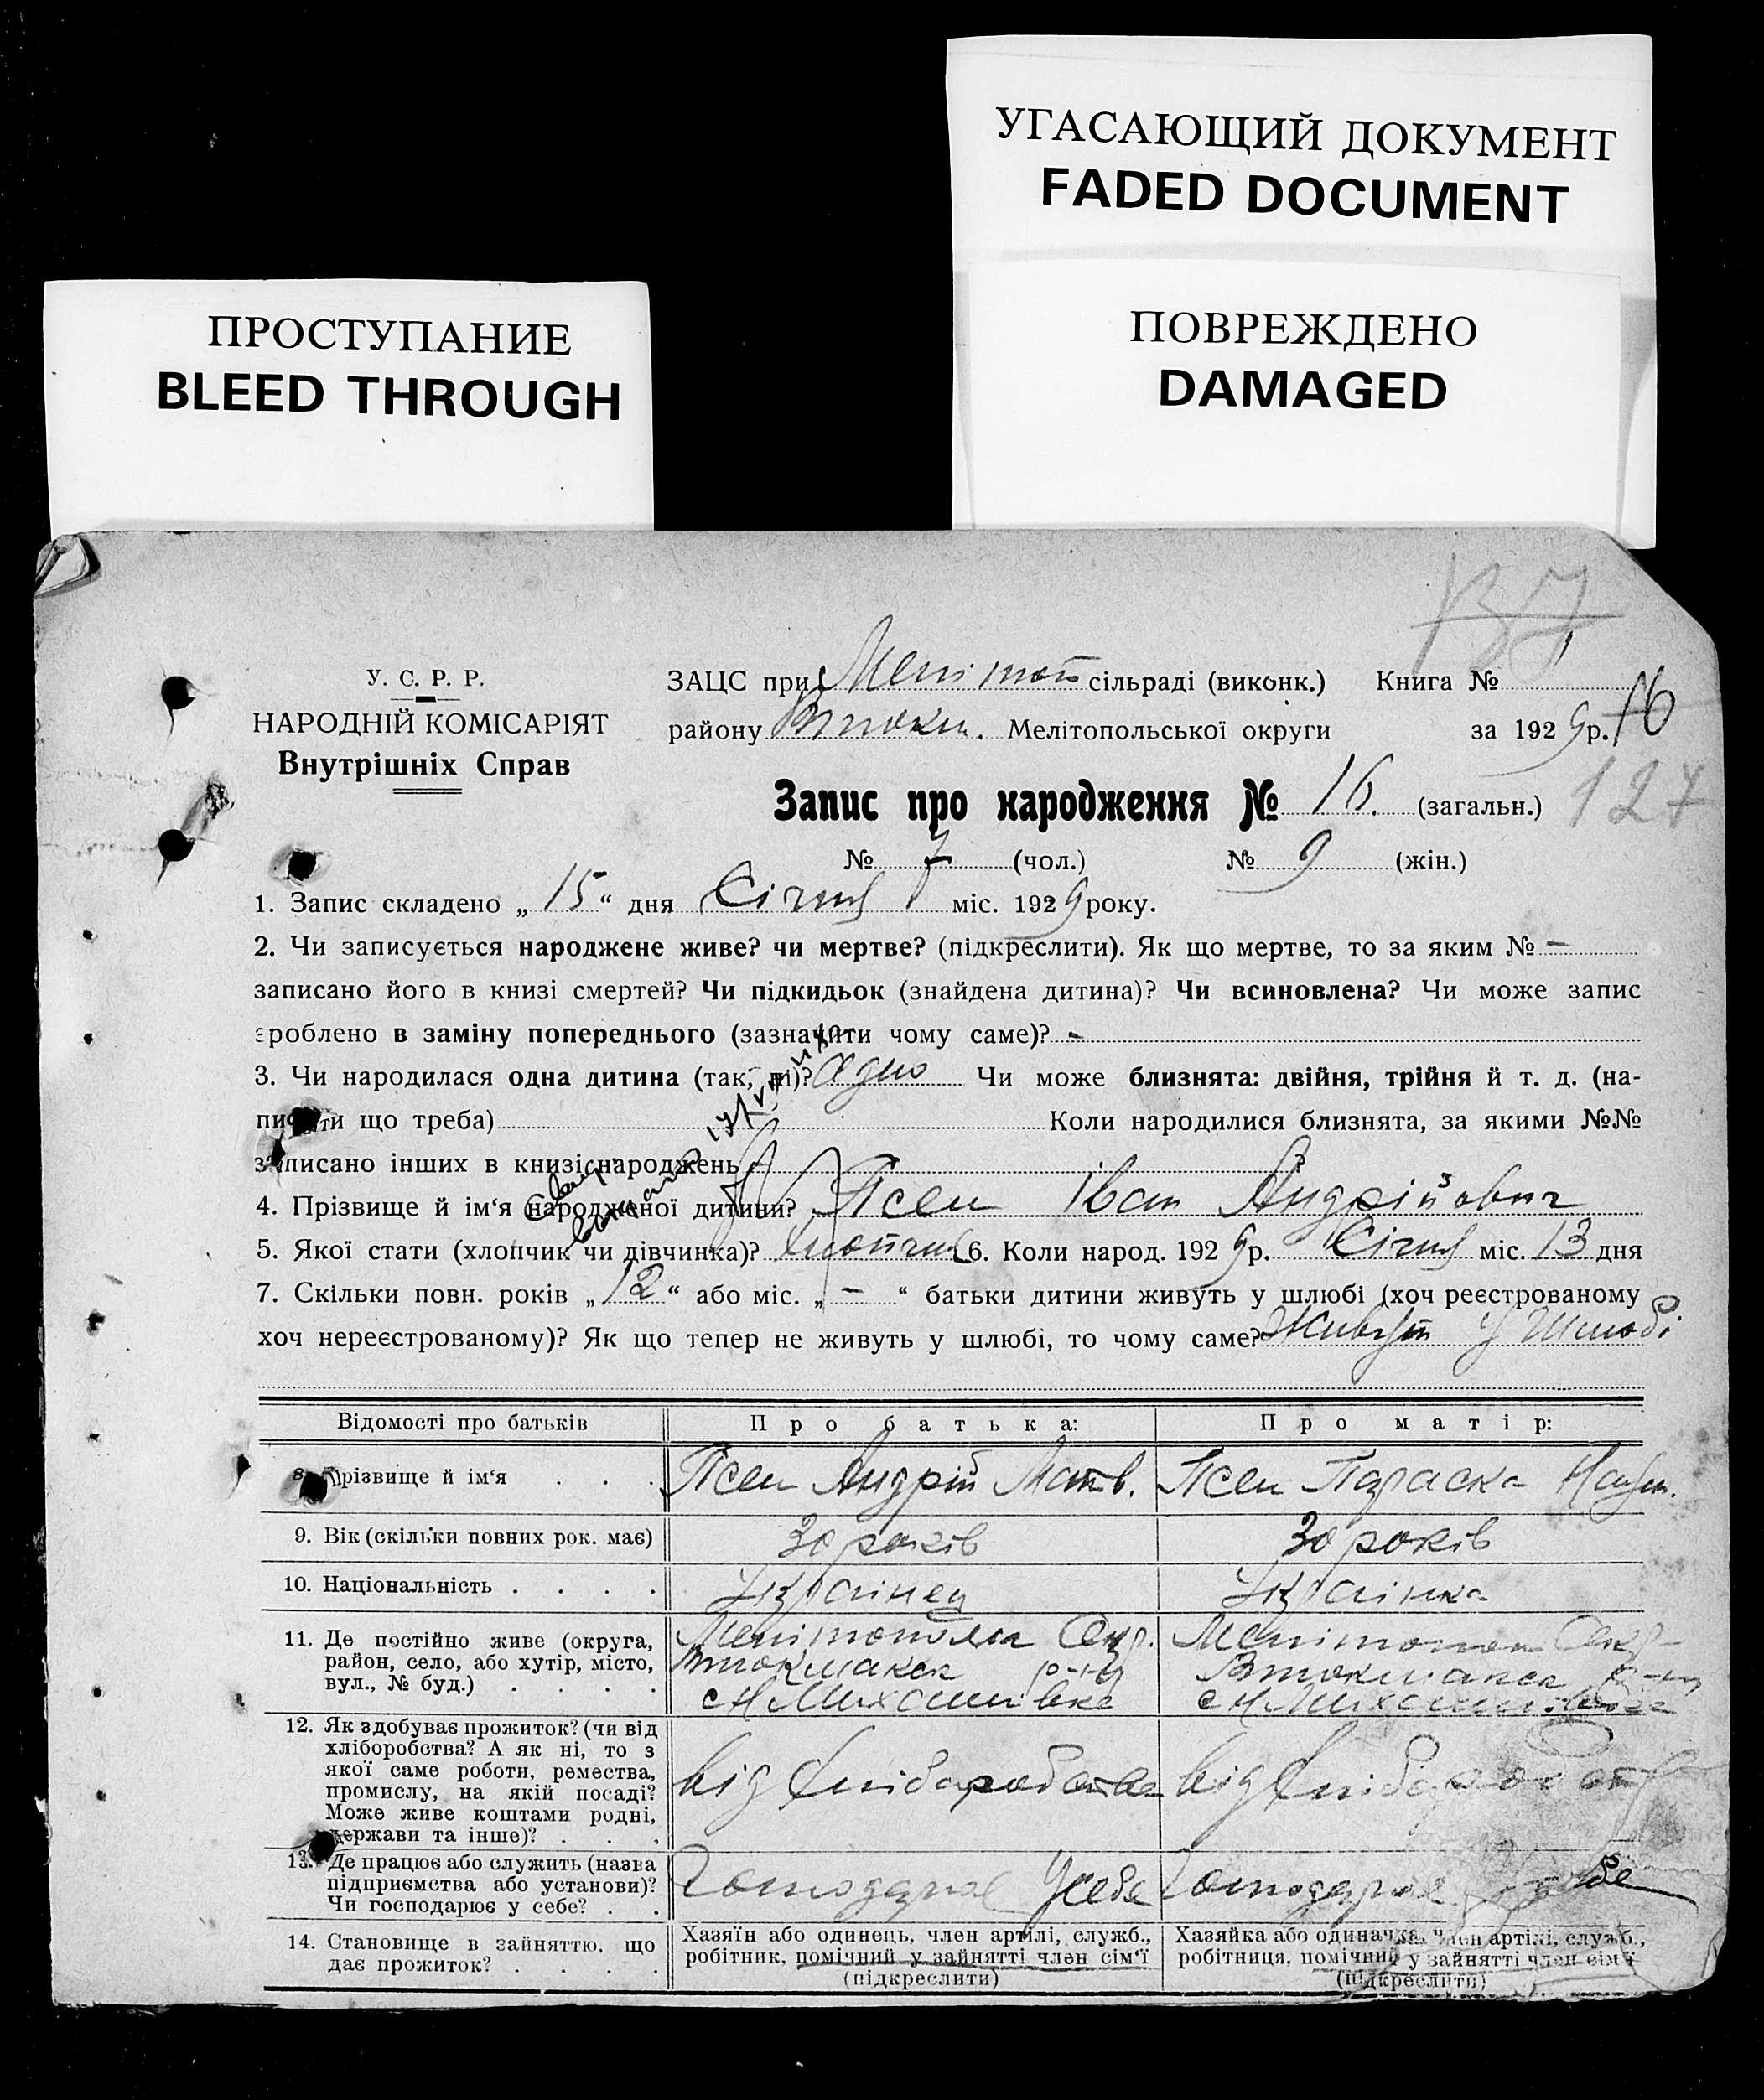 УГАСАЮЩИЙ ДОКУМЕНТ
FADED DOCUMENT
ПРОСТУПАНИЕ
BLEED THROUGH
ПОВРЕЖДЕНО
DAMAGED
137
У. С. Р. Р.
НАРОДНІЙ КОМІСАРІЯТ
Внутрішніх Справ
ЗАЦС при сільраді (виконк.) Книга № 1
району Мелітопольської округи за 1929 р. 16
Запис про народження № 16. (загальн.) 127
№ 7 (чол.) № 9 (жін.)
1. Запис складено „15“ дня Січня міс. 1929 року.
2. Чи записується народжене живе? чи мертве? (підкреслити). Як що мертве, то за яким № —
записано його в книзі смертей? Чи підкидьок (знайдена дитина)? Чи всиновлена? Чи може запис
зроблено в заміну попереднього (зазначити чому саме)? -
3. Чи народилася одна дитина (так, ні)? Одно Чи може близнята: двійня, трійня й т. д. (на-
писати що треба) Коли народилися близнята, за якими №№
записано інших в книзі народжень -
4. Прізвище й ім‘я народженої дитини? Псел Іван Андрійович
5. Якої стати (хлопчик чи дівчинка)? Хлопчик 6. Коли народ. 1929 р. Січня міс. 13 дня
7. Скільки повн. років „12“ або міс. „—“ батьки дитини живуть у шлюбі (хоч реєстрованому
хоч нереєстрованому)? Як що тепер не живуть у шлюбі, то чому саме? Живут У Шлюбі
Відомості про батьків Про батька: Про матір:
8. Прізвище й ім‘я Псел Андрій Матв. Псел Параска Наум.
9. Вік (скільки повних рок. має) 30 років 30 років
10. Національність Українец Українка
11. Де постійно живе (округа,
район, село, або хутір, місто,
вул., № буд.)
Мелітопольска Окр.
Втокмакск р-ну
с Н Михайлівка
Мелітопольск Окр
Втокмакск р-ну
с Н Михайлівка
12. Як здобуває прожиток? (чи від
хліборобства? А як ні, то з
якої саме роботи, ремества,
промислу, на якій посаді?
Може живе коштами родні,
держави та інше)?
від хліборобства від хліборобства
13. Де працює або служить (назва
підприємства або установи)?
Чи господарює у себе?
Господарює Усебе Господарює Усебе
14. Становище в зайняттю, що
дає прожиток?
Хазяїн або одинець, член артілі, служб.,
робітник, помічний у зайнятті член сім‘ї
(підкреслити)
Хазяйка або одиначка, член артілі, служб.,
робітниця, помічний у зайнятті член сім‘ї
(підкреслити)